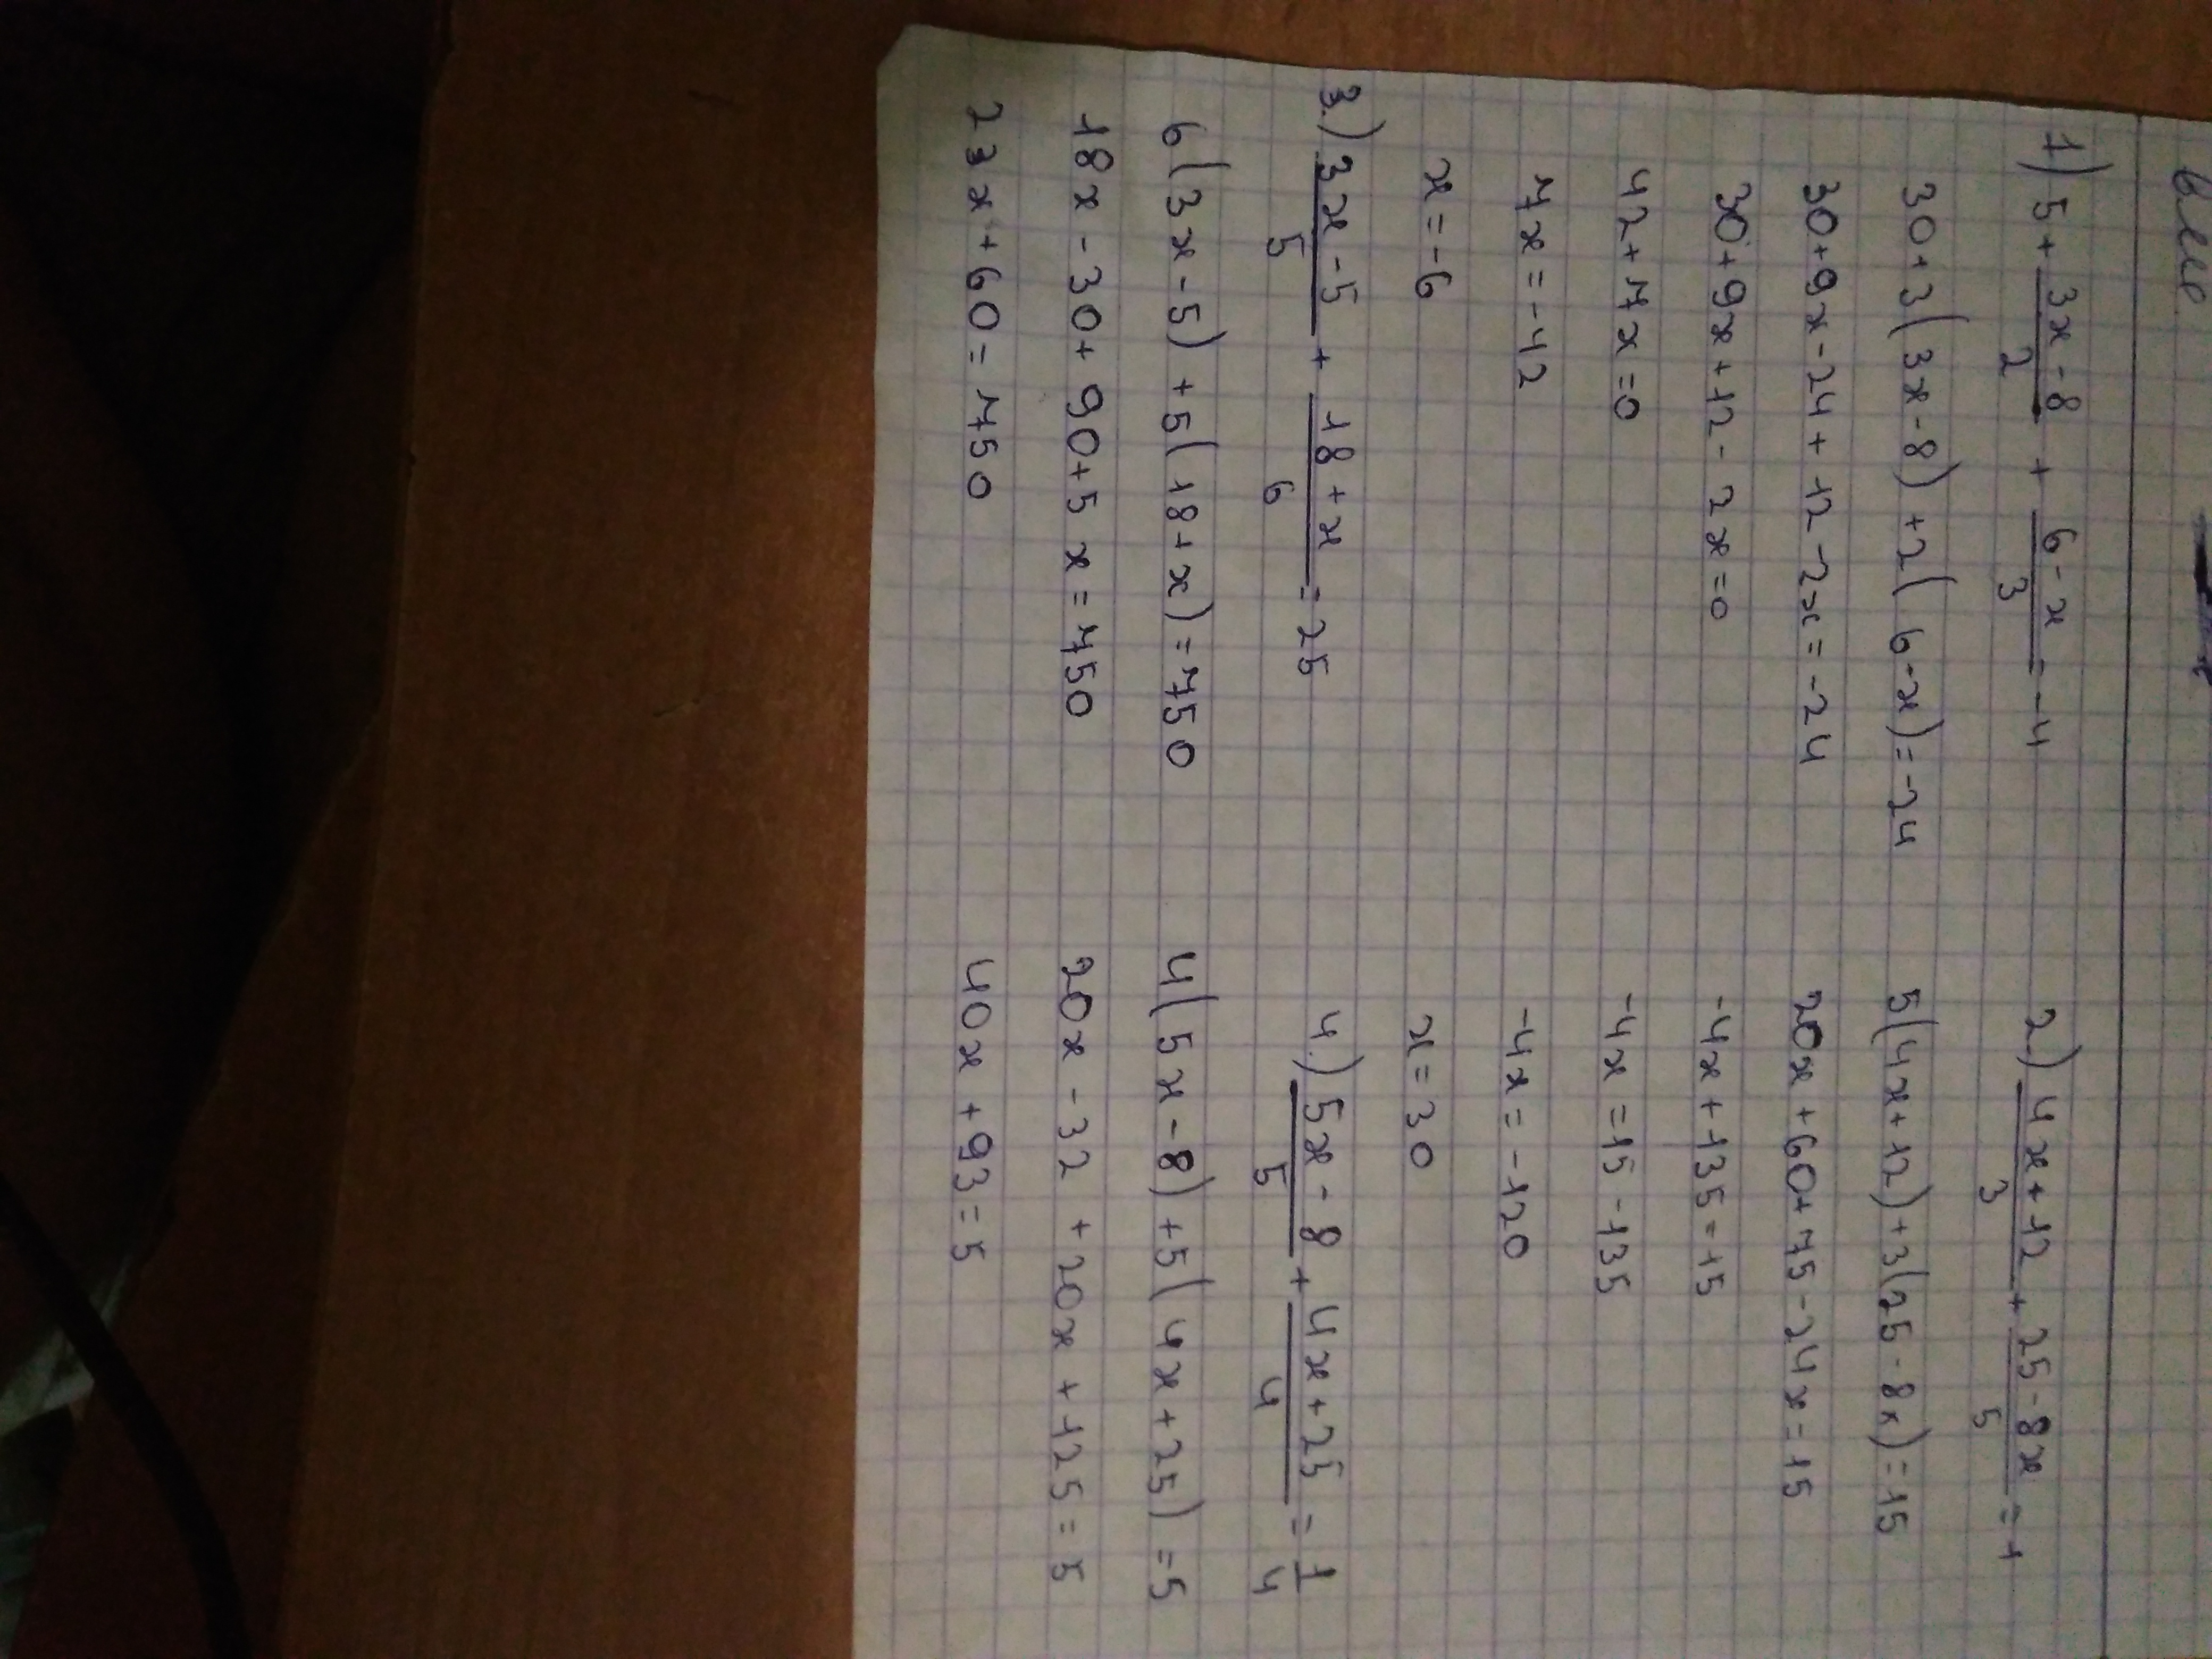 1) 5 + (3x - 8)/2 + (6 - x)/3 = -4
30 + 3(3x - 8) + 2(6 - x) = -24
30 + 9x - 24 + 12 - 2x = -24
30 + 9x + 12 - 2x = 0
42 + 7x = 0
7x = -42
x = -6
2.) (4x + 12)/3 + (25 - 8x)/5 = 1
5(4x + 12) + 3(25 - 8x) = 15
20x + 60 + 75 - 24x = 15
-4x + 135 = 15
-4x = 15 - 135
-4x = -120
x = 30
3.) (3x - 5)/5 + (18 + x)/6 = 25
6(3x - 5) + 5(18 + x) = 750
18x - 30 + 90 + 5x = 750
23x + 60 = 750
4.) (5x - 8)/5 + (4x + 25)/4 = 1/4
4(5x - 8) + 5(4x + 25) = 5
20x - 32 + 20x + 125 = 5
40x + 93 = 5